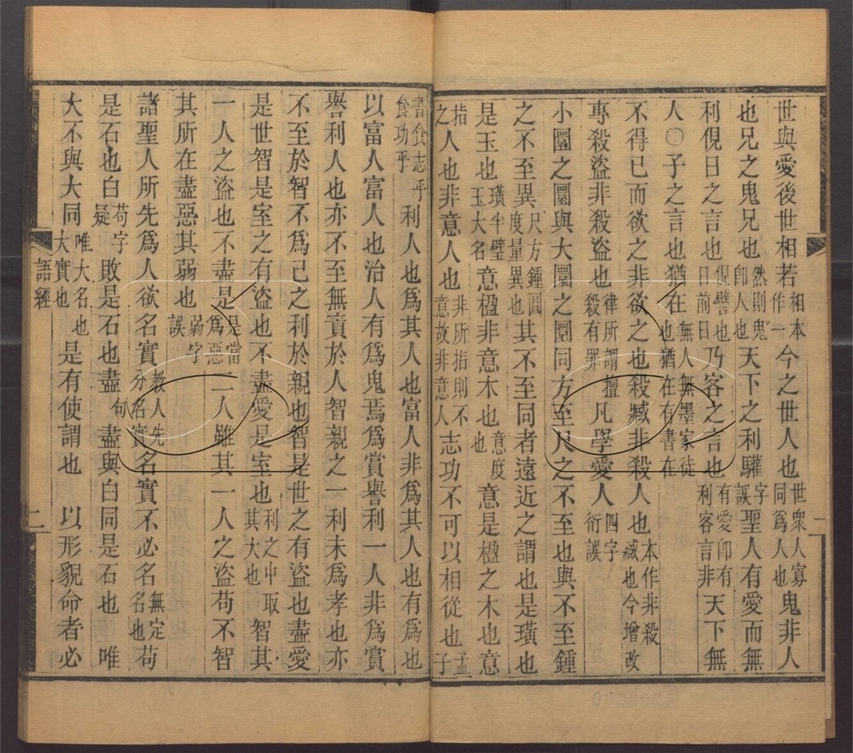 世與愛後世相若相本作一今之世人也世衆人寡同爲人也鬼非人
也兄之鬼兄也然則鬼卽人也天下之利驩字誤聖人有愛而無
利俔日之言也俔譬也日前日乃客之言也有愛卽有利客言非天下無
人〇子之言也猶在無人無墨家徒也猶在有書在
不得已而欲之非欲之也殺臧非殺人也本作非殺臧也今增改
專殺盜非殺盜也律所謂擅殺有罪凡學愛人四字衍誤
小圜之圜與大圜之圜同方至尺之不至也與不至鍾
之不至異尺方鍾圓度量異也其不至同者遠近之謂也是璜也
是玉也璜半璧玉大名意楹非意木也意度也意是楹之木也意
指之人也非意人也非所指則不意故非意人志功不可以相從也孟子
書食志乎食功乎利人也爲其人也富人非爲其人也有爲也
以富人富人也治人有爲鬼焉爲賞譽利一人非爲賞
譽利人也亦不至無貴於人智親之一利未爲孝也亦
不至於智不爲己之利於親也智是世之有盜也盡愛
是世智是室之有盜也不盡愛是室也利之中取其大也智其
一人之盜也不盡是是當爲惡二人雖其一人之盜苟不智
其所在盡惡其弱也弱字誤
諸聖人所先爲人欲名實教人先分名實名實不必名無定名也苟
是石也白苟字疑敗是石也盡句盡與白同是石也 唯
大不與大同唯大名也大實也是有使謂也 以形貌命者必
語經
二